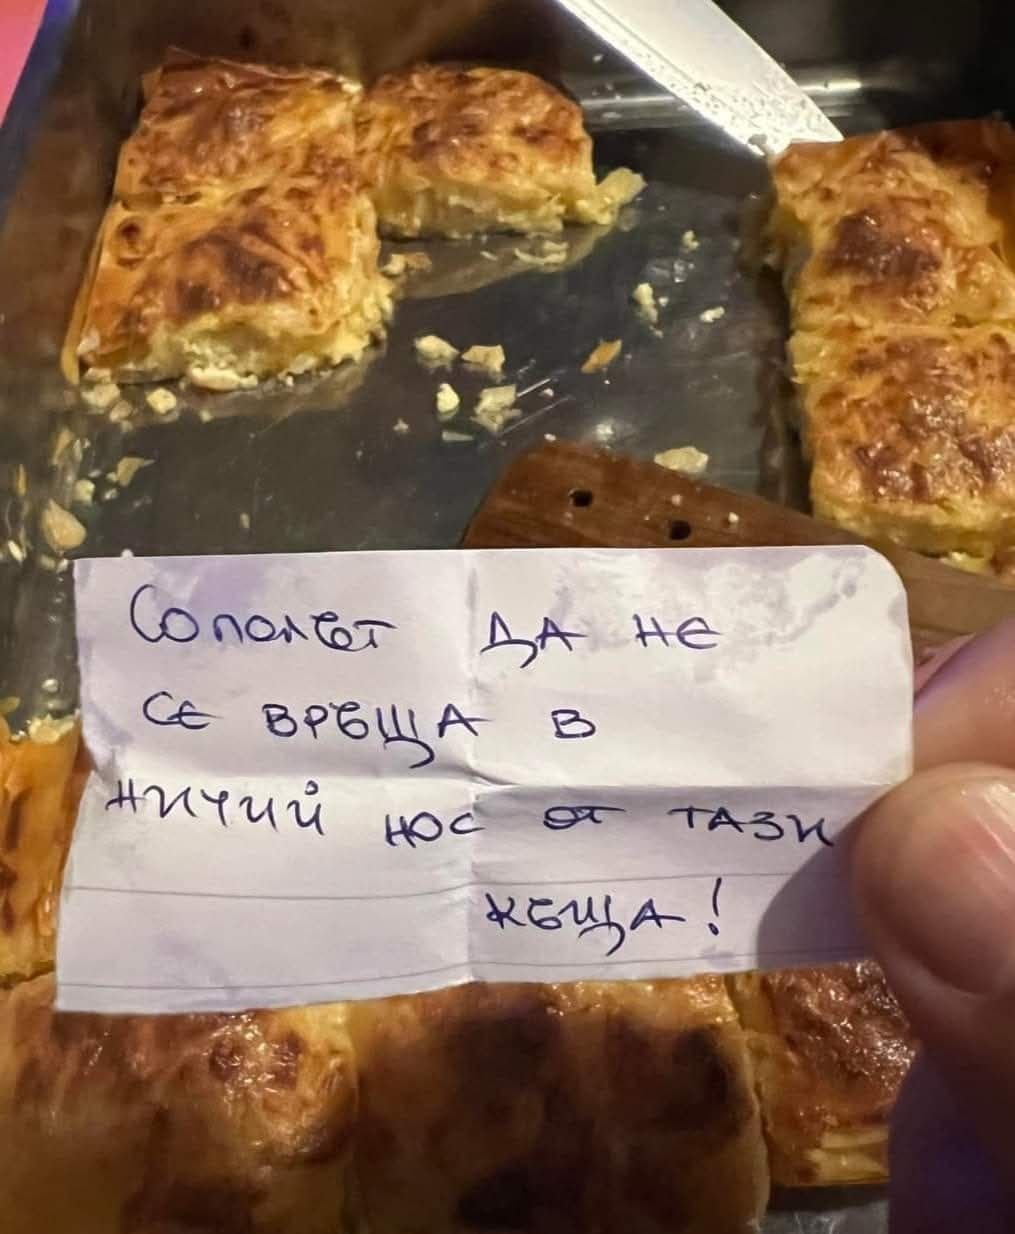 Сополът да не
се връща в
ничий нос от тази
къща!